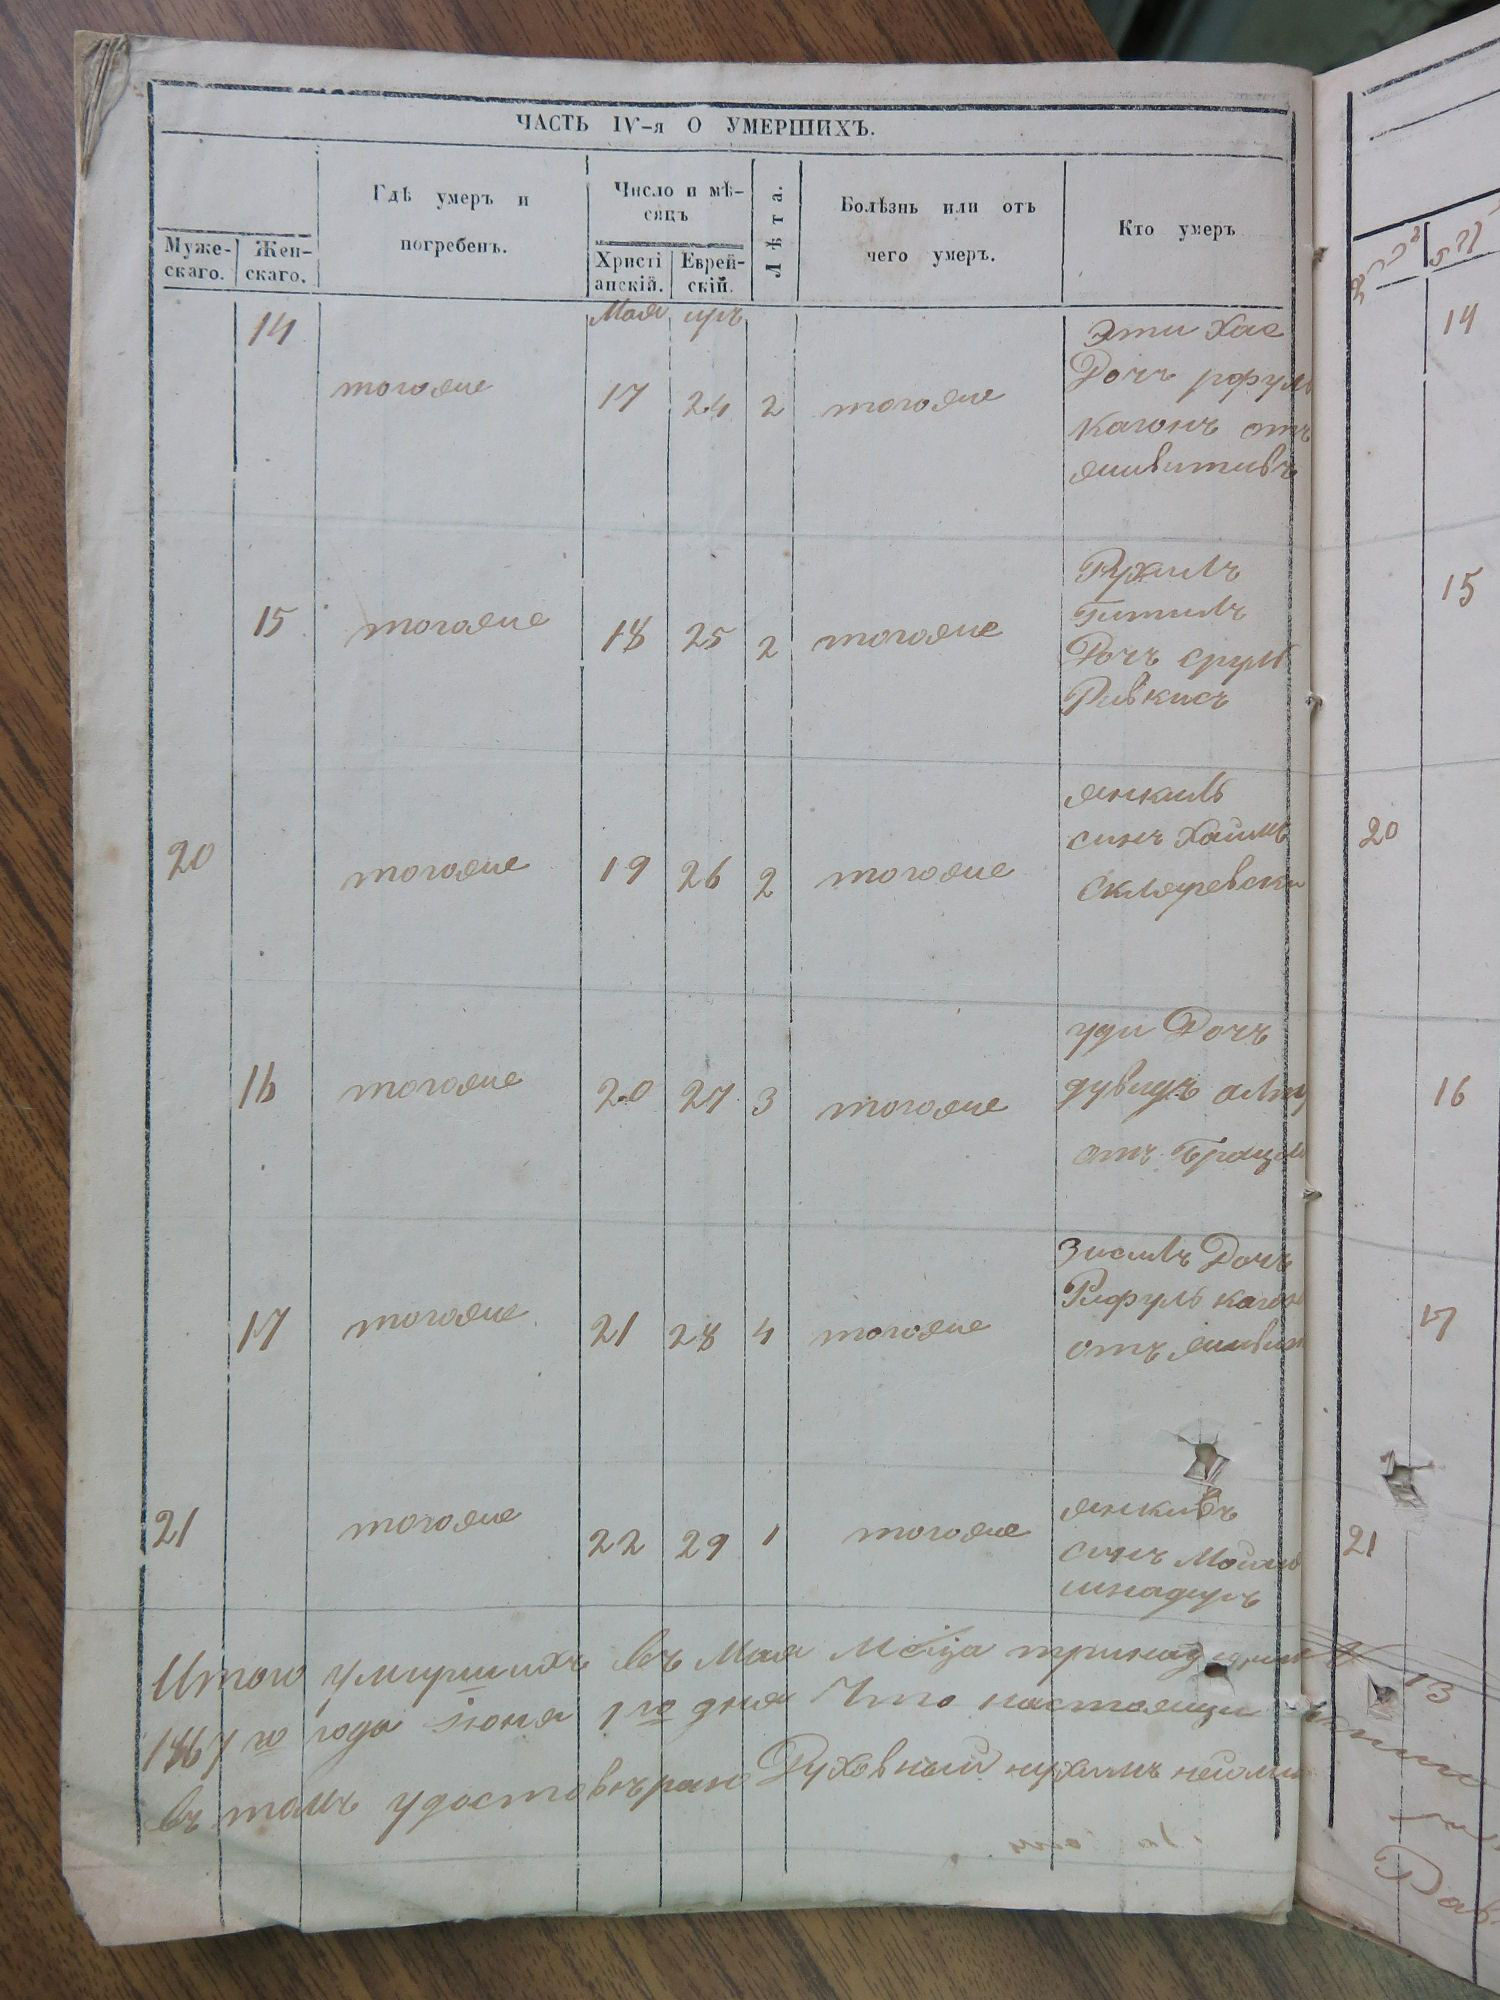 ЧАСТЬ IV-я О УМЕРШИХЪ.
Муже-
скаго.
Жен-
скаго.
Гдѣ умеръ и
погребенъ.
Число и мѣ-
сяцъ
Христі
анскій.
Еврей-
скій.
Лѣта.
Болѣзнь или отъ
чего умеръ.
Кто умеръ
Мая иръ
14 тогоже 17 24 2 тогоже
Эти Хае
Дочъ рфуль
Кагонъ отъ
15 тогоже 18 25 2 тогоже
Рухиль
Гитиль
Дочъ сруль
Ривкисъ
20 тогоже 19 26 2 тогоже
янкиль
синъ Хаимъ
Скляревски
16 тогоже 20 27 3 тогоже
уди Дочъ
дувидъ
отъ
17 тогоже 21 28 4 тогоже
Зисиль Дочъ
Рифуль кагонъ
отъ
21 тогоже 22 29 1 тогоже
янкивъ
синъ
шнадиръ
Итого умершихъ въ Мая Мсца
1867 го года Июня 1 го дня Что настоящи
въ томъ удостовѣраю Духовный нухимъ
14
15
20
16
17
21
13